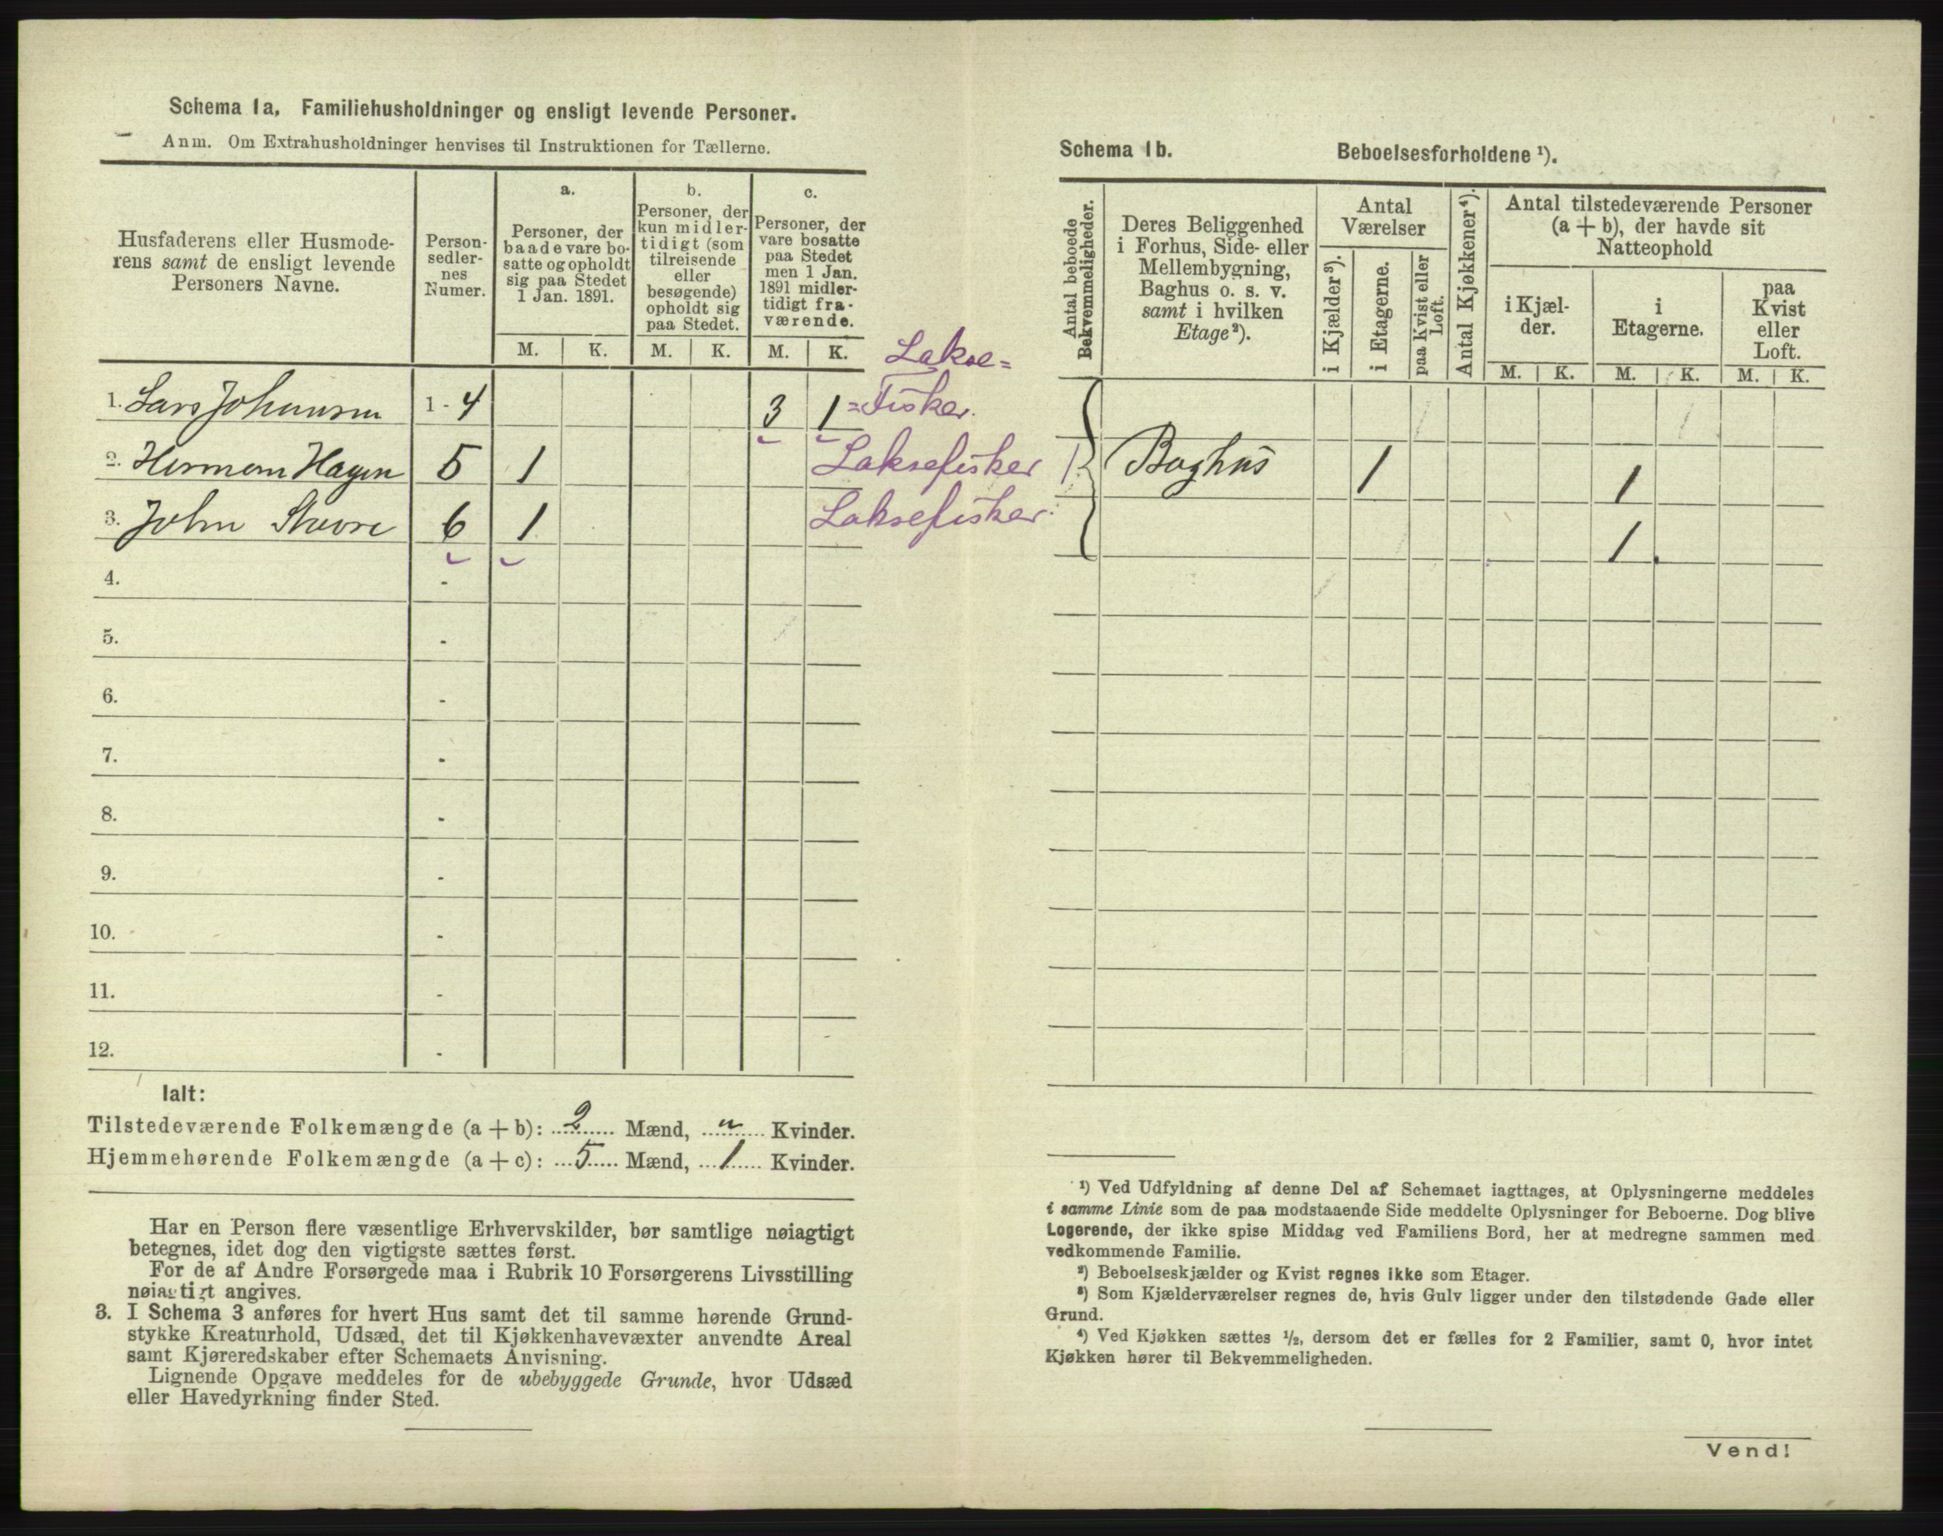 Schema 1a. Familiehusholdninger og ensligt levende Personer.
Anm. Om Extrahusholdninger henvises til Instruktionen for Tællerne.
Husfaderens eller Husmode-
rens samt de ensligt levende
Personers Navne.
Person-
sedler-
nes
Numer.
a.
Personer, der
baade vare bo-
satte og opholdt
sig paa Stedet
1 Jan. 1891.
b.
Personer, der
kun midler-
tidigt (som
tilreisende
eller
besøgende)
opholdt sig
paa Stedet.
c.
Personer, der
vare bosatte
paa Stedet
men 1 Jan.
1891 midler-
tidigt fra-
værende.
M. K. M. K. M. K.
1. Lars Johansen 1 - 4 3 1 Lakse=
=Fisker.
2. Herman Hagen 5 1 Laksefisker
3. John 6 1 Laksefisker.
4. -
5. -
6. -
7. -
8. -
9. -
10. -
11. -
12. -
Ialt:
Tilstedeværende Folkemængde (a + b): 2 Mænd, „ Kvinder.
Hjemmehørende Folkemængde (a + c): 5 Mænd, 1 Kvinder.
Har en Person flere væsentlige Erhvervskilder, bør samtlige nøiagtigt
betegnes, idet dog den vigtigste sættes først.
For de af Andre Forsørgede maa i Rubrik 10 Forsørgerens Livsstilling
nøiagtigt angives.
3. I Schema 3 anføres for hvert Hus samt det til samme hørende Grund-
stykke Kreaturhold, Udsæd, det til Kjøkkenhavevæxter anvendte Areal
samt Kjøreredskaber efter Schemaets Anvisning.
Lignende Opgave meddeles for de ubebyggede Grunde, hvor Udsæd
eller Havedyrkning finder Sted.
Schema 1b. Beboelsesforholdene ¹).
Antal beboede
Bekvemmeligheder.
Deres Beliggenhed
i Forhus, Side- eller
Mellembygning,
Baghus o. s. v.
samt i hvilken
Etage²).
Antal
Værelser
i Kjælder³).
i Etagerne.
paa Kvist eller
Loft.
Antal Kjøkkener⁴).
Antal tilstedeværende Personer
(a + b), der havde sit
Natteophold
i Kjæl-
der.
i
Etagerne.
paa
Kvist
eller
Loft.
M. K. M. K. M. K.
1 Baghus 1 1
1
¹) Ved Udfyldning af denne Del af Schemaet iagttages, at Oplysningerne meddeles
i samme Linie som de paa modstaaende Side meddelte Oplysninger for Beboerne. Dog blive
Logerende, der ikke spise Middag ved Familiens Bord, her at medregne sammen med
vedkommende Familie.
²) Beboelseskjælder og Kvist regnes ikke som Etager.
³) Som Kjælderværelser regnes de, hvis Gulv ligger under den tilstødende Gade eller
Grund.
⁴) Ved Kjøkken sættes ½, dersom det er fælles for 2 Familier, samt 0, hvor intet
Kjøkken hører til Bekvemmeligheden.
Vend!